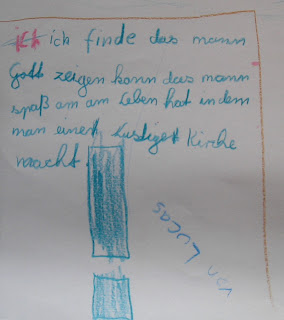 ich ich finde das mann
Gott zeigen kann das mann
spaß am am Leben hat indem
man einen lustigen Kirche
macht.
von Lucas